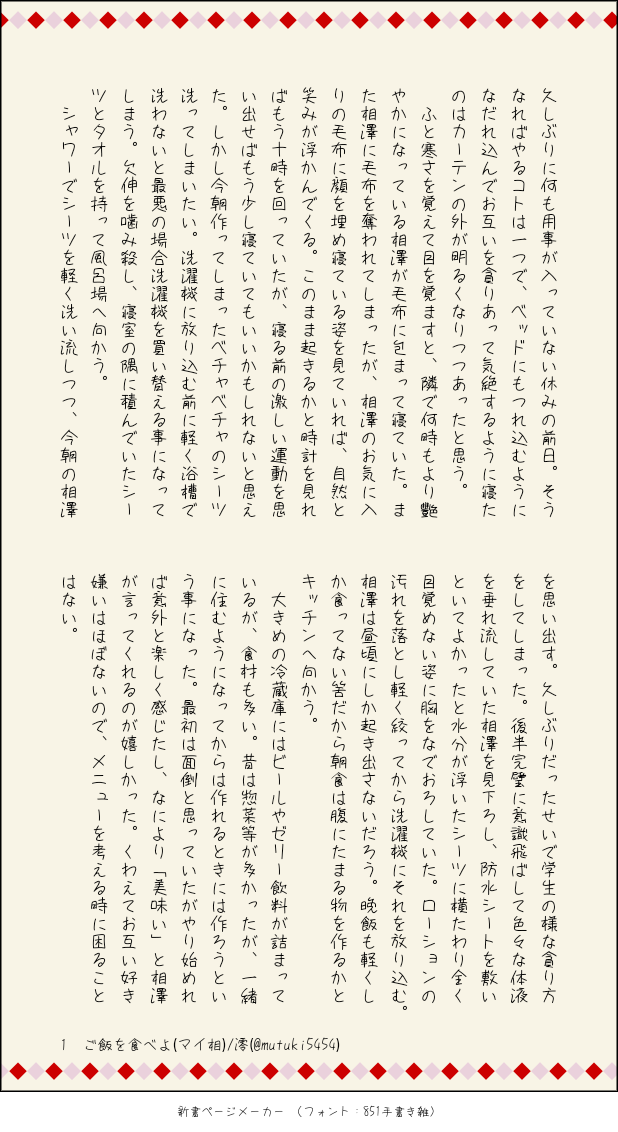 久しぶりに何も用事が入っていない休みの前日。そう
なればやるコトは一つで、ベッドにもつれ込むように
なだれ込んでお互いを貪りあって気絶するように寝た
のはカーテンの外が明るくなりつつあったと思う。
　ふと寒さを覚えて目を覚ますと、隣で何時もより艶
やかになっている相澤が毛布に包まって寝ていた。ま
た相澤に毛布を奪われてしまったが、相澤のお気に入
りの毛布に顔を埋め寝ている姿を見ていれば、自然と
笑みが浮かんでくる。このまま起きるかと時計を見れ
ばもう十時を回っていたが、寝る前の激しい運動を思
い出せばもう少し寝ていてもいいかもしれないと思え
た。しかし今朝作ってしまったベチャベチャのシーツ
洗ってしまいたい。洗濯機に放り込む前に軽く浴槽で
洗わないと最悪の場合洗濯機を買い替える事になって
しまう。欠伸を噛み殺し、寝室の隅に積んでいたシー
ツとタオルを持って風呂場へ向かう。
　シャワーでシーツを軽く洗い流しつつ、今朝の相澤
を思い出す。久しぶりだったせいで学生の様な貪り方
をしてしまった。後半完璧に意識飛ばして色々な体液
を垂れ流していた相澤を見下ろし、防水シートを敷い
といてよかったと水分が浮いたシーツに横たわり全く
目覚めない姿に胸をなでおろしていた。ローションの
汚れを落とし軽く絞ってから洗濯機にそれを放り込む。
相澤は昼頃にしか起き出さないだろう。晩飯も軽くし
か食ってない筈だから朝食は腹にたまる物を作るかと
キッチンへ向かう。
　大きめの冷蔵庫にはビールやゼリー飲料が詰まって
いるが、食材も多い。昔は惣菜等が多かったが、一緒
に住むようになってからは作れるときには作ろうとい
う事になった。最初は面倒と思っていたがやり始めれ
ば意外と楽しく感じたし、なにより「美味い」と相澤
が言ってくれるのが嬉しかった。くわえてお互い好き
嫌いはほぼないので、メニューを考える時に困ること
はない。
1　ご飯を食べよ(マイ相)/澪(@mutuki5454)
新書ページメーカー　（フォント：851手書き雑）